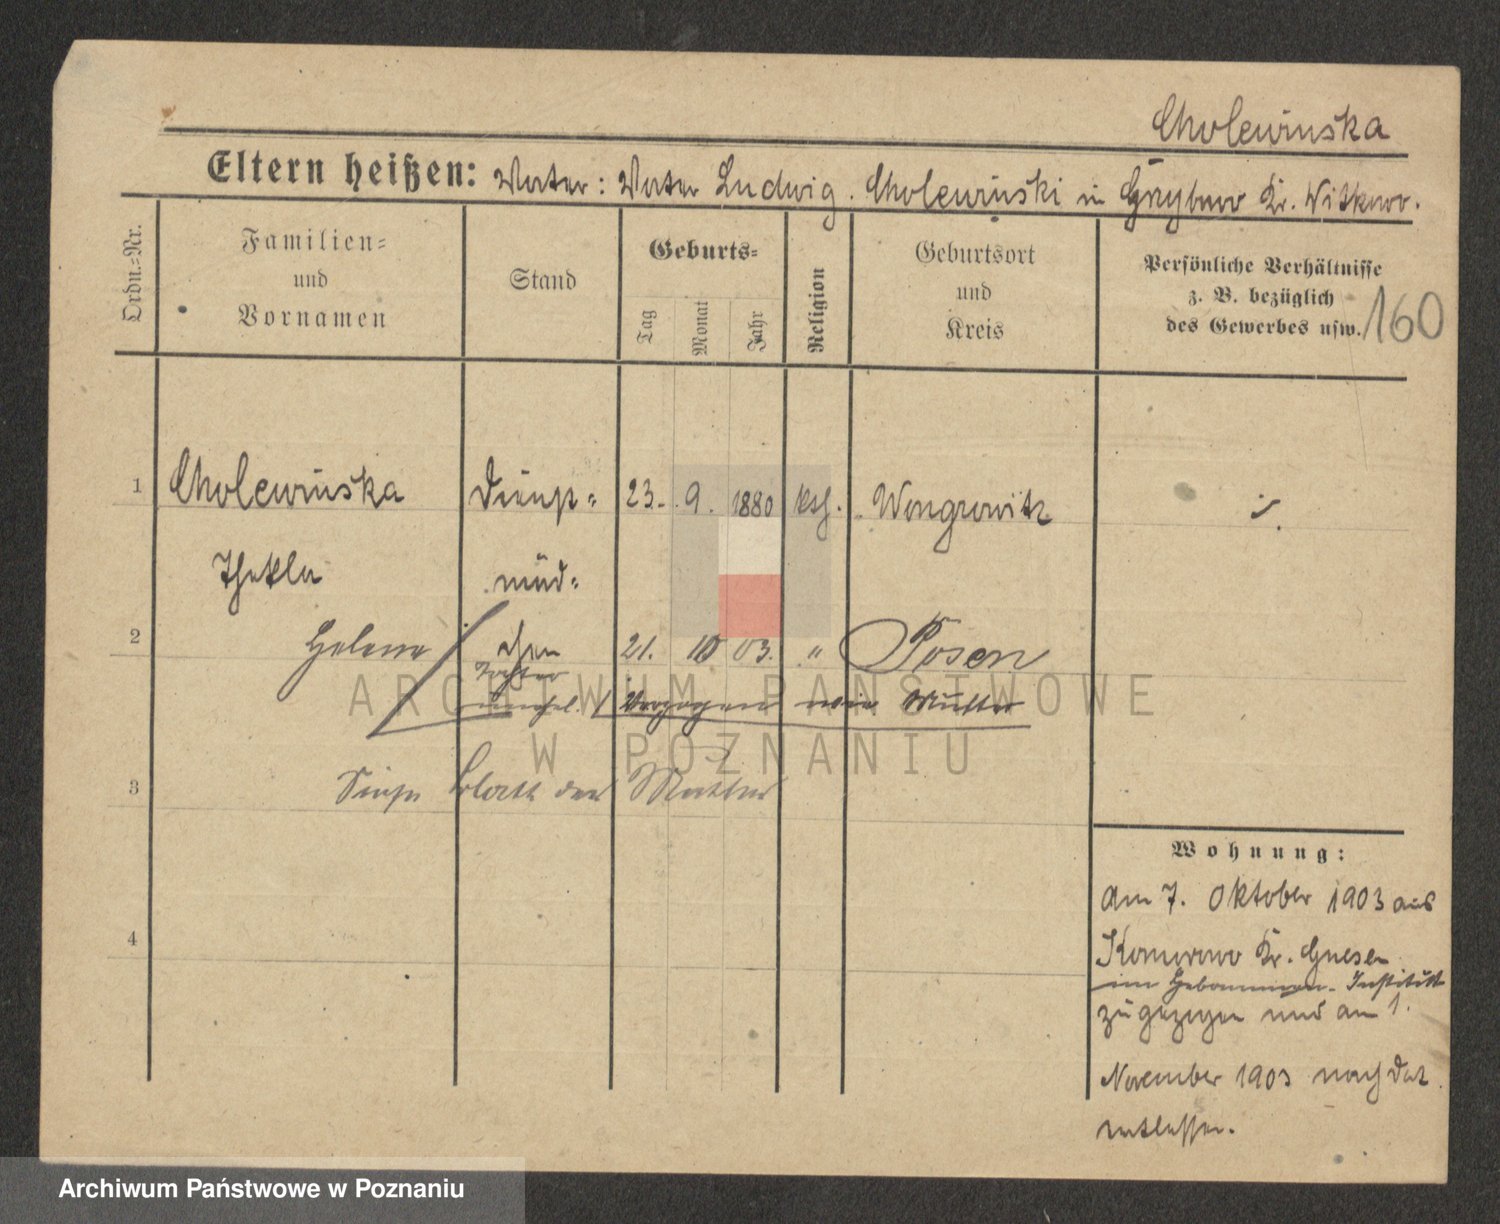 Cholewinska
Eltern heißen: Vater: Vater Ludwig. Cholewinski in Grzybowo Kr. Witkowo.
Ordn.=Nr.
Familien=
und
Vornamen
Stand
Geburts=
Tag
Monat
Jahr
Religion
Geburtsort
und
Kreis
Persönliche Verhältnisse
z. B. bezüglich
des Gewerbes usw.
160
1 Cholewinska Dienst= 23. 9. 1880 kth. Wongrowitz
Thekla mäd=
2 Helene chen 21. 10 03. " Posen
Tochter
unehel. Verzogen wie Mutter
3 Siehe Blatt der Mutter
4
Wohnung:
Am 7. Oktober 1903 aus
Komorowo Kr. Gnesen
im Hebammen-Institut
zugezogen und am 1.
November 1903 nach dort
entlassen.
ARCHIWUM PAŃSTWOWE
W POZNANIU
Archiwum Państwowe w Poznaniu